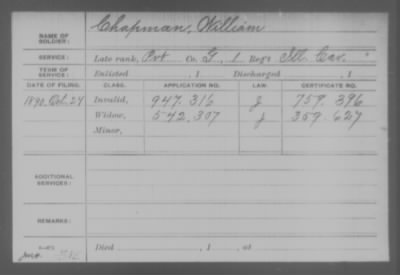 NAME OF SOLDIER: Chapman, William
SERVICE: Late rank, Pvt Co. G, 1 Reg't Ill. Cav.
TERM OF SERVICE: Enlisted , 1 Discharged , 1
DATE OF FILING. CLASS. APPLICATION NO. LAW. CERTIFICATE NO.
1890, Oct. 24 Invalid, 947.316 J 759.396
Widow, 542,307 J 359.627
Minor,
ADDITIONAL SERVICES:
REMARKS:
Died , 1 , at